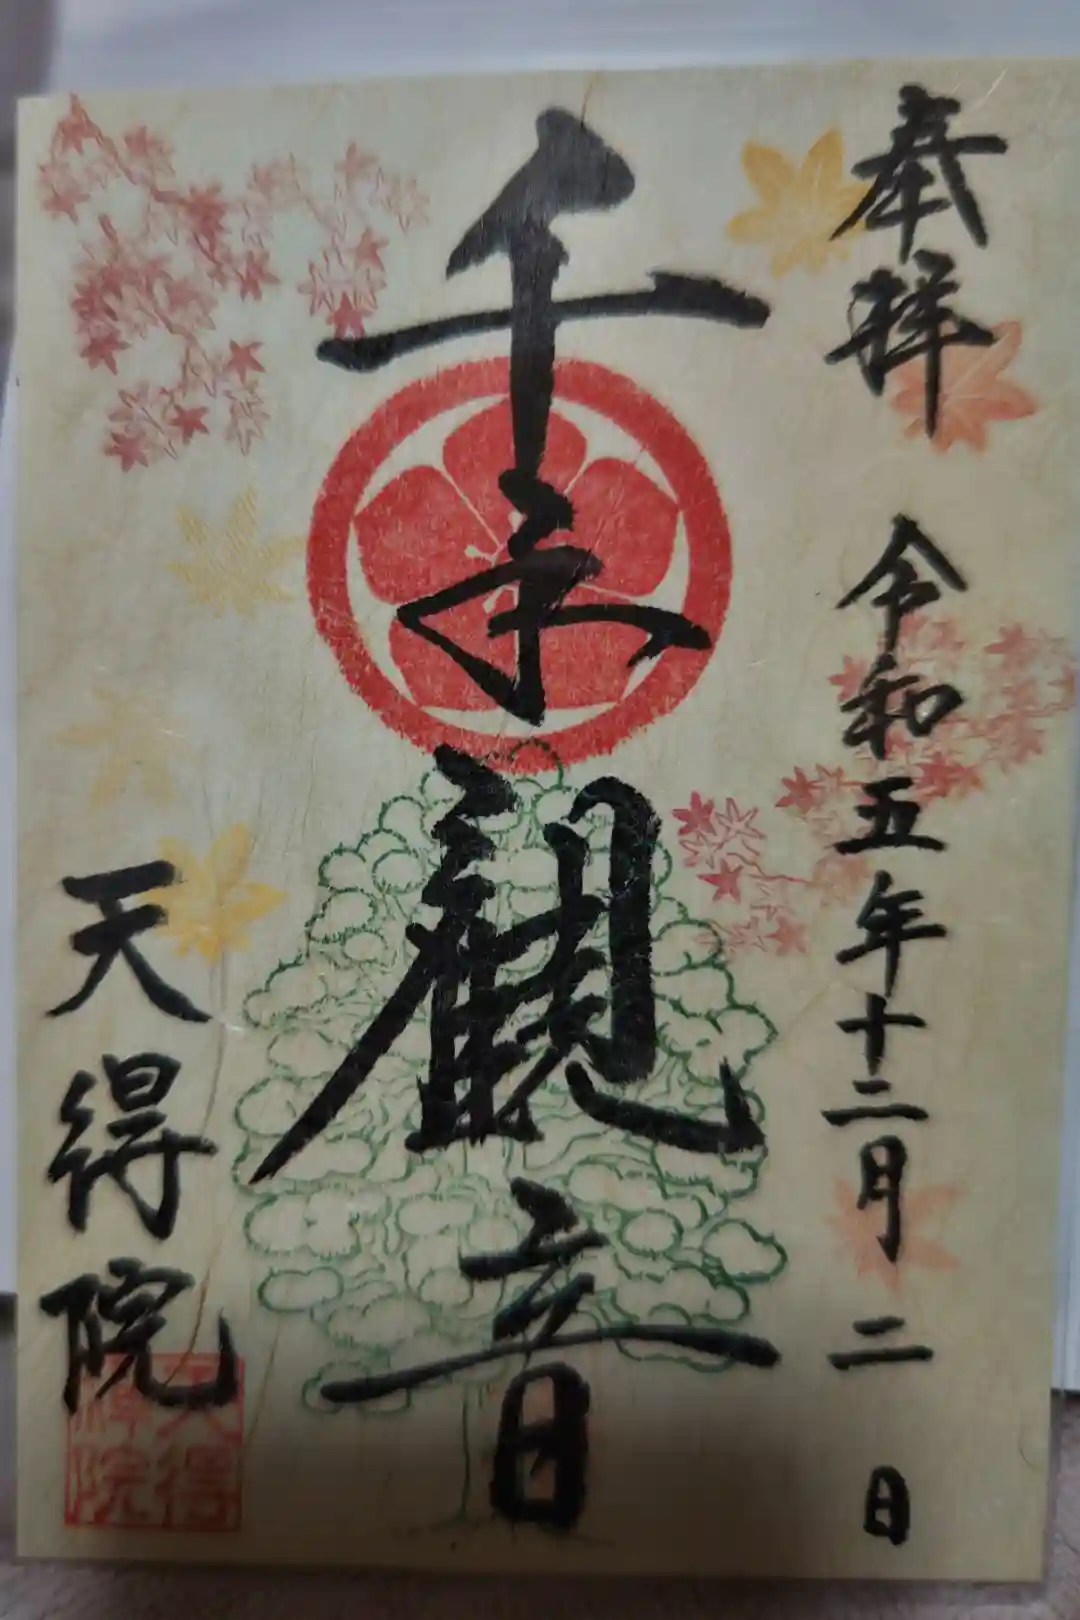 奉拝 令和五年十二月二日
千手観音
天得院
天得
禅院